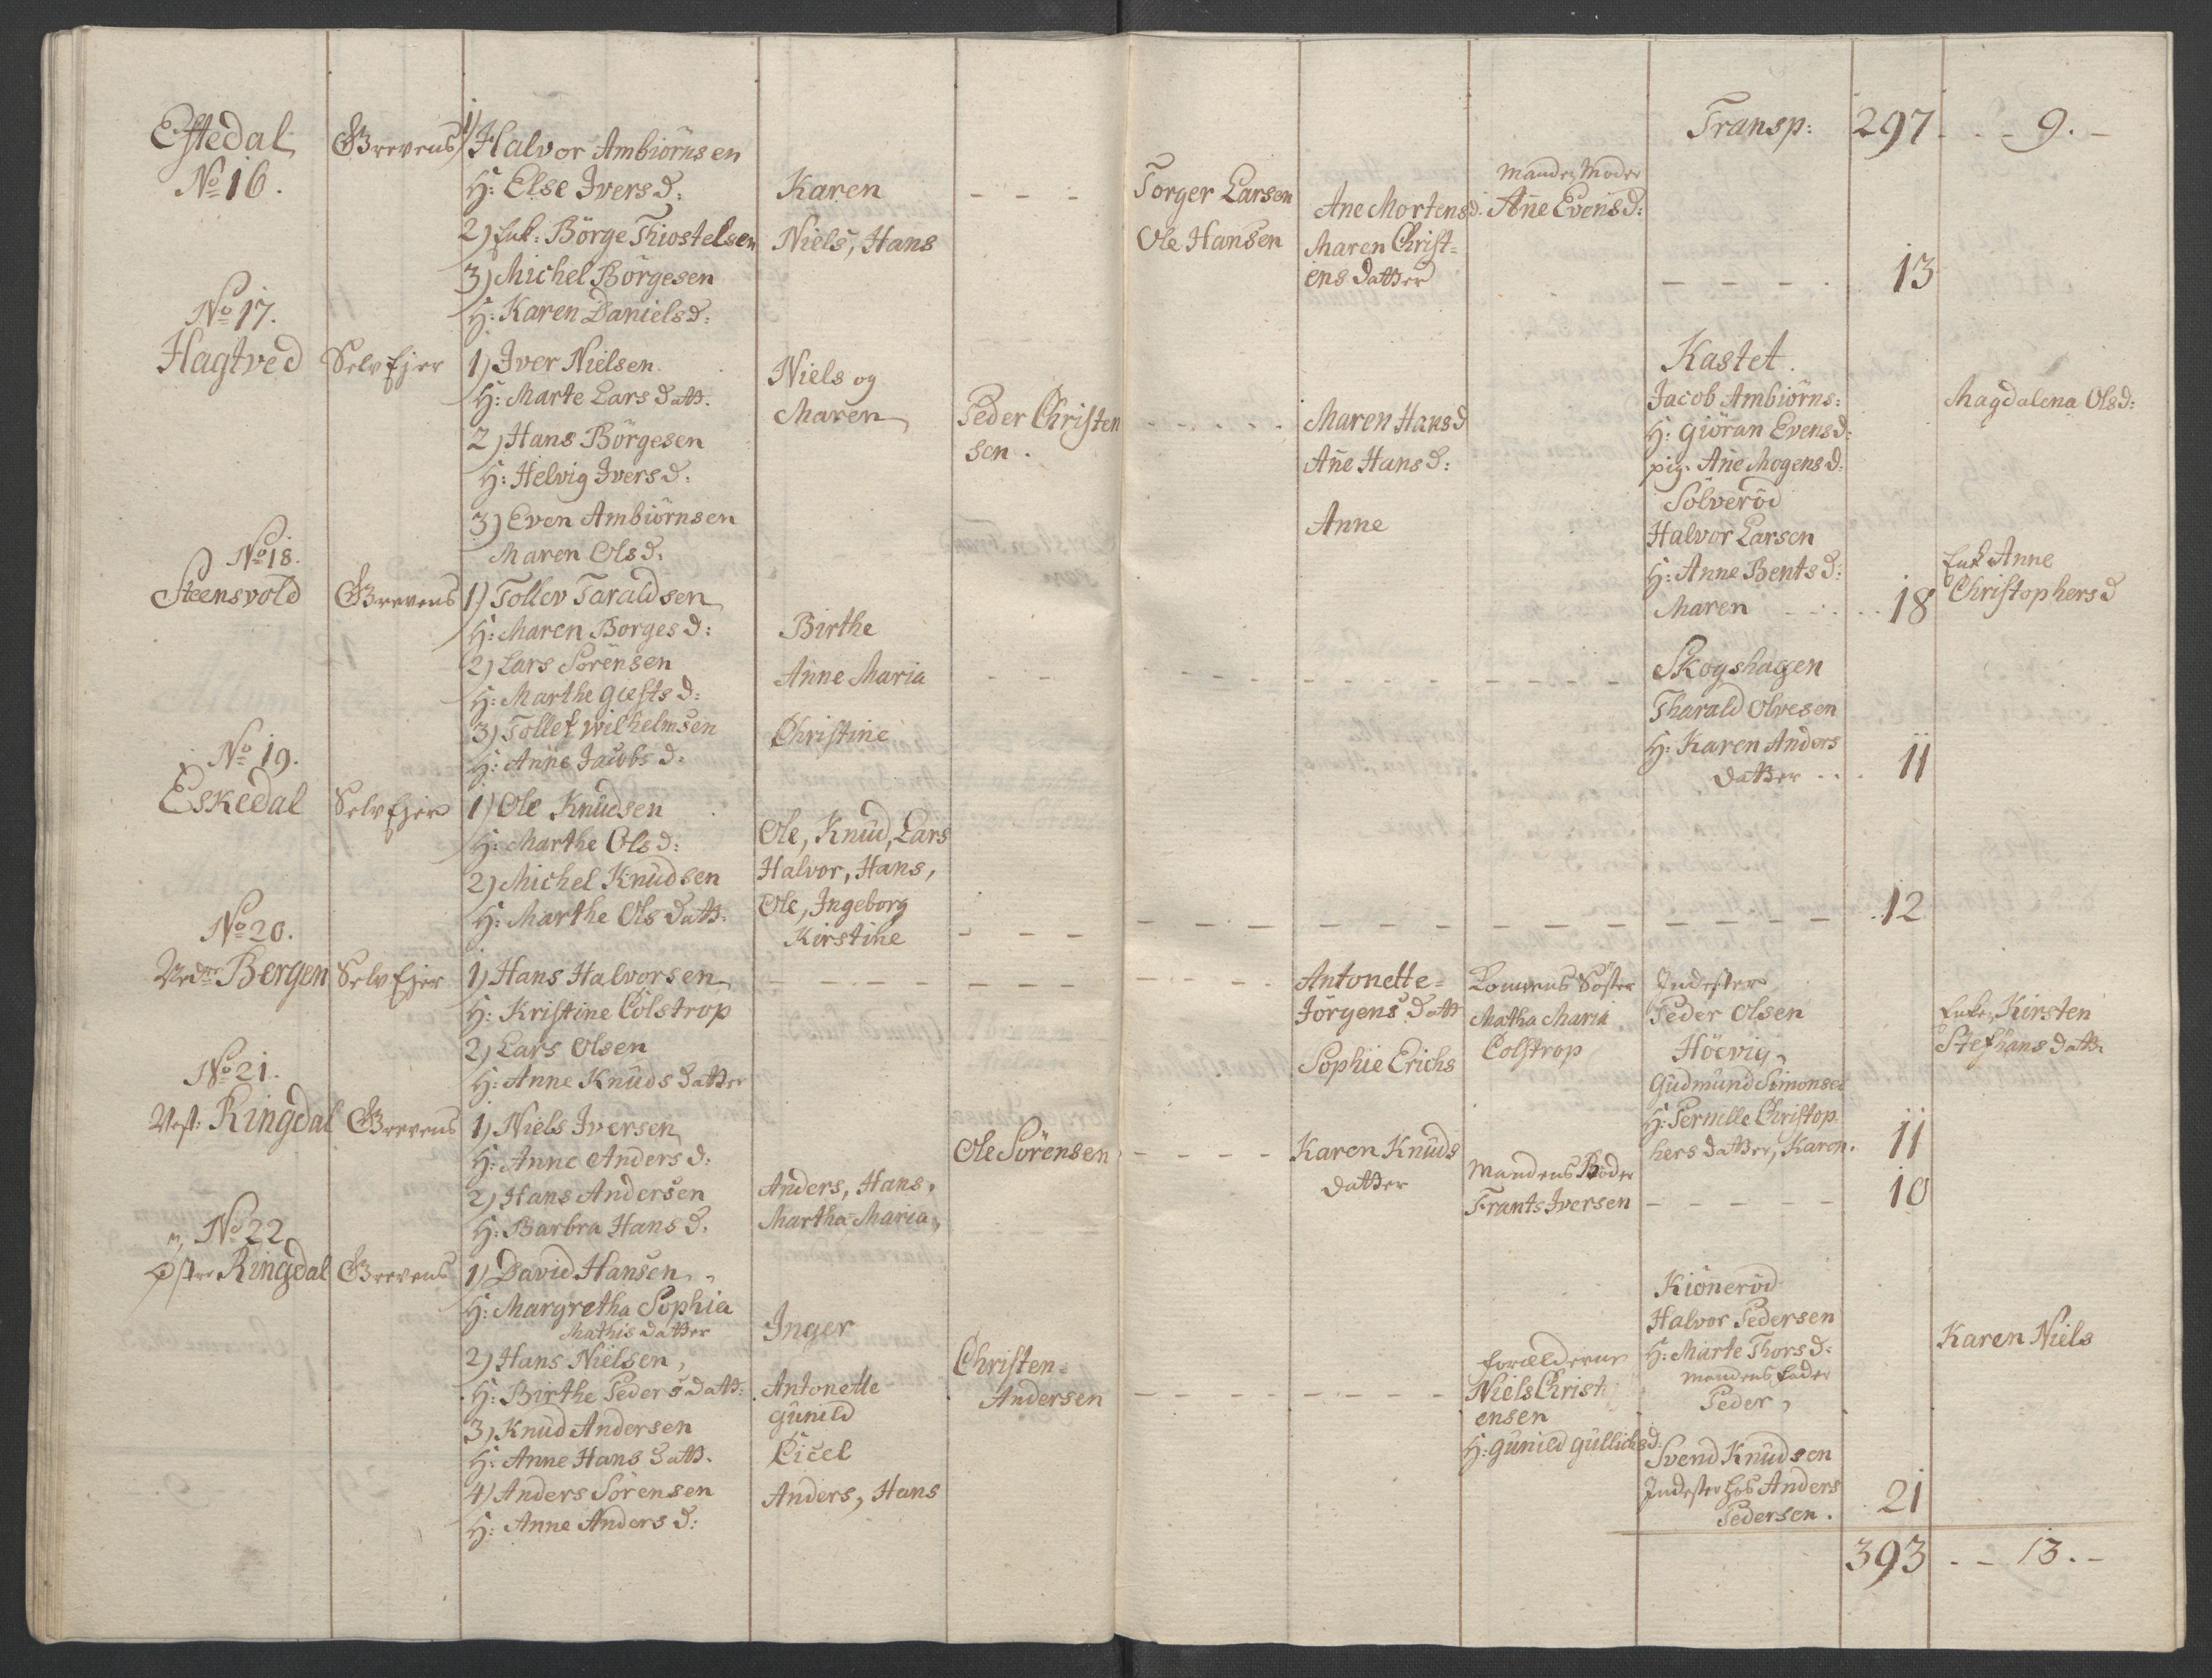 Transp: 297 - - - 9. -
Eftedal
No 16.
Grevens
1) Halvor Ambiörnsen
H: Else Ivers d:
2) Enk: Börge Thiostelsen
3) Michel Börgesen
H: Karen Daniels d:
Karen - - -
Niels, Hans
Torger Larsen
Ole Hansen
Ane Mortens d:
Maren Christ=
ens datter
Mandens Moder
Añe Evens d:
- - - - - 13
No 17.
Hagtved
Selv Ejer
1) Iver Nielsen
H: Marte Lars datt.
2) Hans Börgesen
H: Helvig Ivers d:
3) Even Ambiörnsen
Maren Ols d.
Niels og
Maren
Peder Christen
sen.
- - - - -
Maren Hans d
Añe Hans d:
Anne
Kastet.
Jacob Ambiörns:
H: Giöran Evens d:
pig. Añe Mogens d.
Sölveröd
Halvor Larsen
H: Anne Bents d:
Maren - - - - 18
Magdalena Ols d:
Enk Anne
Christophers d
No 18.
Steensvold
Grevens
1) Tollev Taraldsen
H: Maren Borges d:
2) Lars Sörensen
H: Marthe Giefts d:
3) Tollef Wilhelmsen
H: Anne Jacobs d:
Birthe
Anne Maria - - -
Christine
- - - - - - - - - - - -
Skogshagen
Tharald Olvesen
H: Karen Anders
datter - - - 11
No 19.
Eskedal
Selv Ejer
1) Ole Knudsen
H: Marthe Ols d:
2) Michel Knudsen
H: Marthe Ols datt.
Ole, Knud, Lars
Halvor, Hans,
Ole, Ingeborg
Kirstine - - - -
- - - - - - - - - - - - 12
No 20.
Nedre Bergen
Selv Ejer
1) Hans Halvorsen
H: Kristine Colstrop
2) Lars Olsen
H: Anne Knuds datter
- - - - - - - - - - -
Antonette=
Jörgens datt
Sophie Erichs
Konens Söster
Matha Maria
Colstrop
Inderster
Peder Olsen
Höevig,
Gudmund Simonsen
H: Pernille Christop
hers datter, Karen. 11
Enke, Kirsten
Stefhans datt
No 21.
Vest: Ringdal
Grevens
1) Niels Iversen
H: Anne Anders d:
2) Hans Andersen
H: Barbra Hans d.
Anders, Hans,
Martha Maria,
Ole Sörensen
- - - -
Karen Knuds
datter
Mandens Broder
Frants Iversen
- - - - - 10
No 22
Østre Ringdal
Grevens
1) David Hansen
H: Margretha Sophia
Mathis datter
2) Hans Nielsen,
H: Birthe Peders datt:
3) Knud Andersen
H: Anne Hans datt.
4) Anders Sörensen
H: Anne Anders d:
Inger
Antonette
Gunild
Cicel
Anders, Hans
Christen=
Andersen
- - - - - - - -
Forælderne
Niels Christ
ensen
H: Gunild Gullichs d:
Kiöneröd
Halvor Pedersen
H: Marte Thors d:
Mandens Fader
Peder,
Svend Knudsen
Inderster hos Anders
Pedersen. 21
Karen Niels
393 - - 13. -